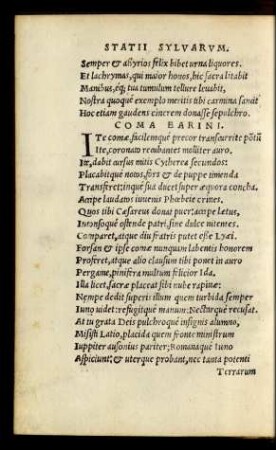 STATII SYLVARVM.
Semper & assyrios felix bibet urna liquores.
Et lachrymas, qui maior honos, hic sacra litabit
Manibus, eq; tua tumulum tellure leuabit,
Nostra quoque exemplo meritis tibi carmina sandit
Hoc etiam gaudens cinerem donasse sepulchro.
COMA EARINI.
ITe comæ, facilemque precor transcurrite põtũ
Ite, coronato recubantes molliter auro.
Ite, dabit cursus mitis Cytherea secundos:
Placabitque notos, fors & de puppe timenda
Transferet: inque sua ducet super æquora concha.
Accipe laudatos iuuenis Phœbeie crines.
Quos tibi Cæsareus donat puer: accipe lætus,
Intonsoque ostende patri, sine dulce nitentes
Comparet, atque diu fratris putet esse Lyæi.
Forsan & ipse comæ nunquam labentis honorem
Proferet, atque alio clausum tibi ponet in auro
Pergame, pinifera multum felicior Ida.
Illa licet, sacræ placeat sibi nube rapinæ:
Nempe dedit superis illum quem turbida semper
Iuno uidet: refugitque manum: Nectarque recusat.
At tu grata Deis pulchroque insignis alumno,
Misisti Latio, placida quem fronte ministrum
Iuppiter ausonius pariter; Romanaque iuno
Aspiciunt; & uterque probant, nec tanta potenti
Terrarum